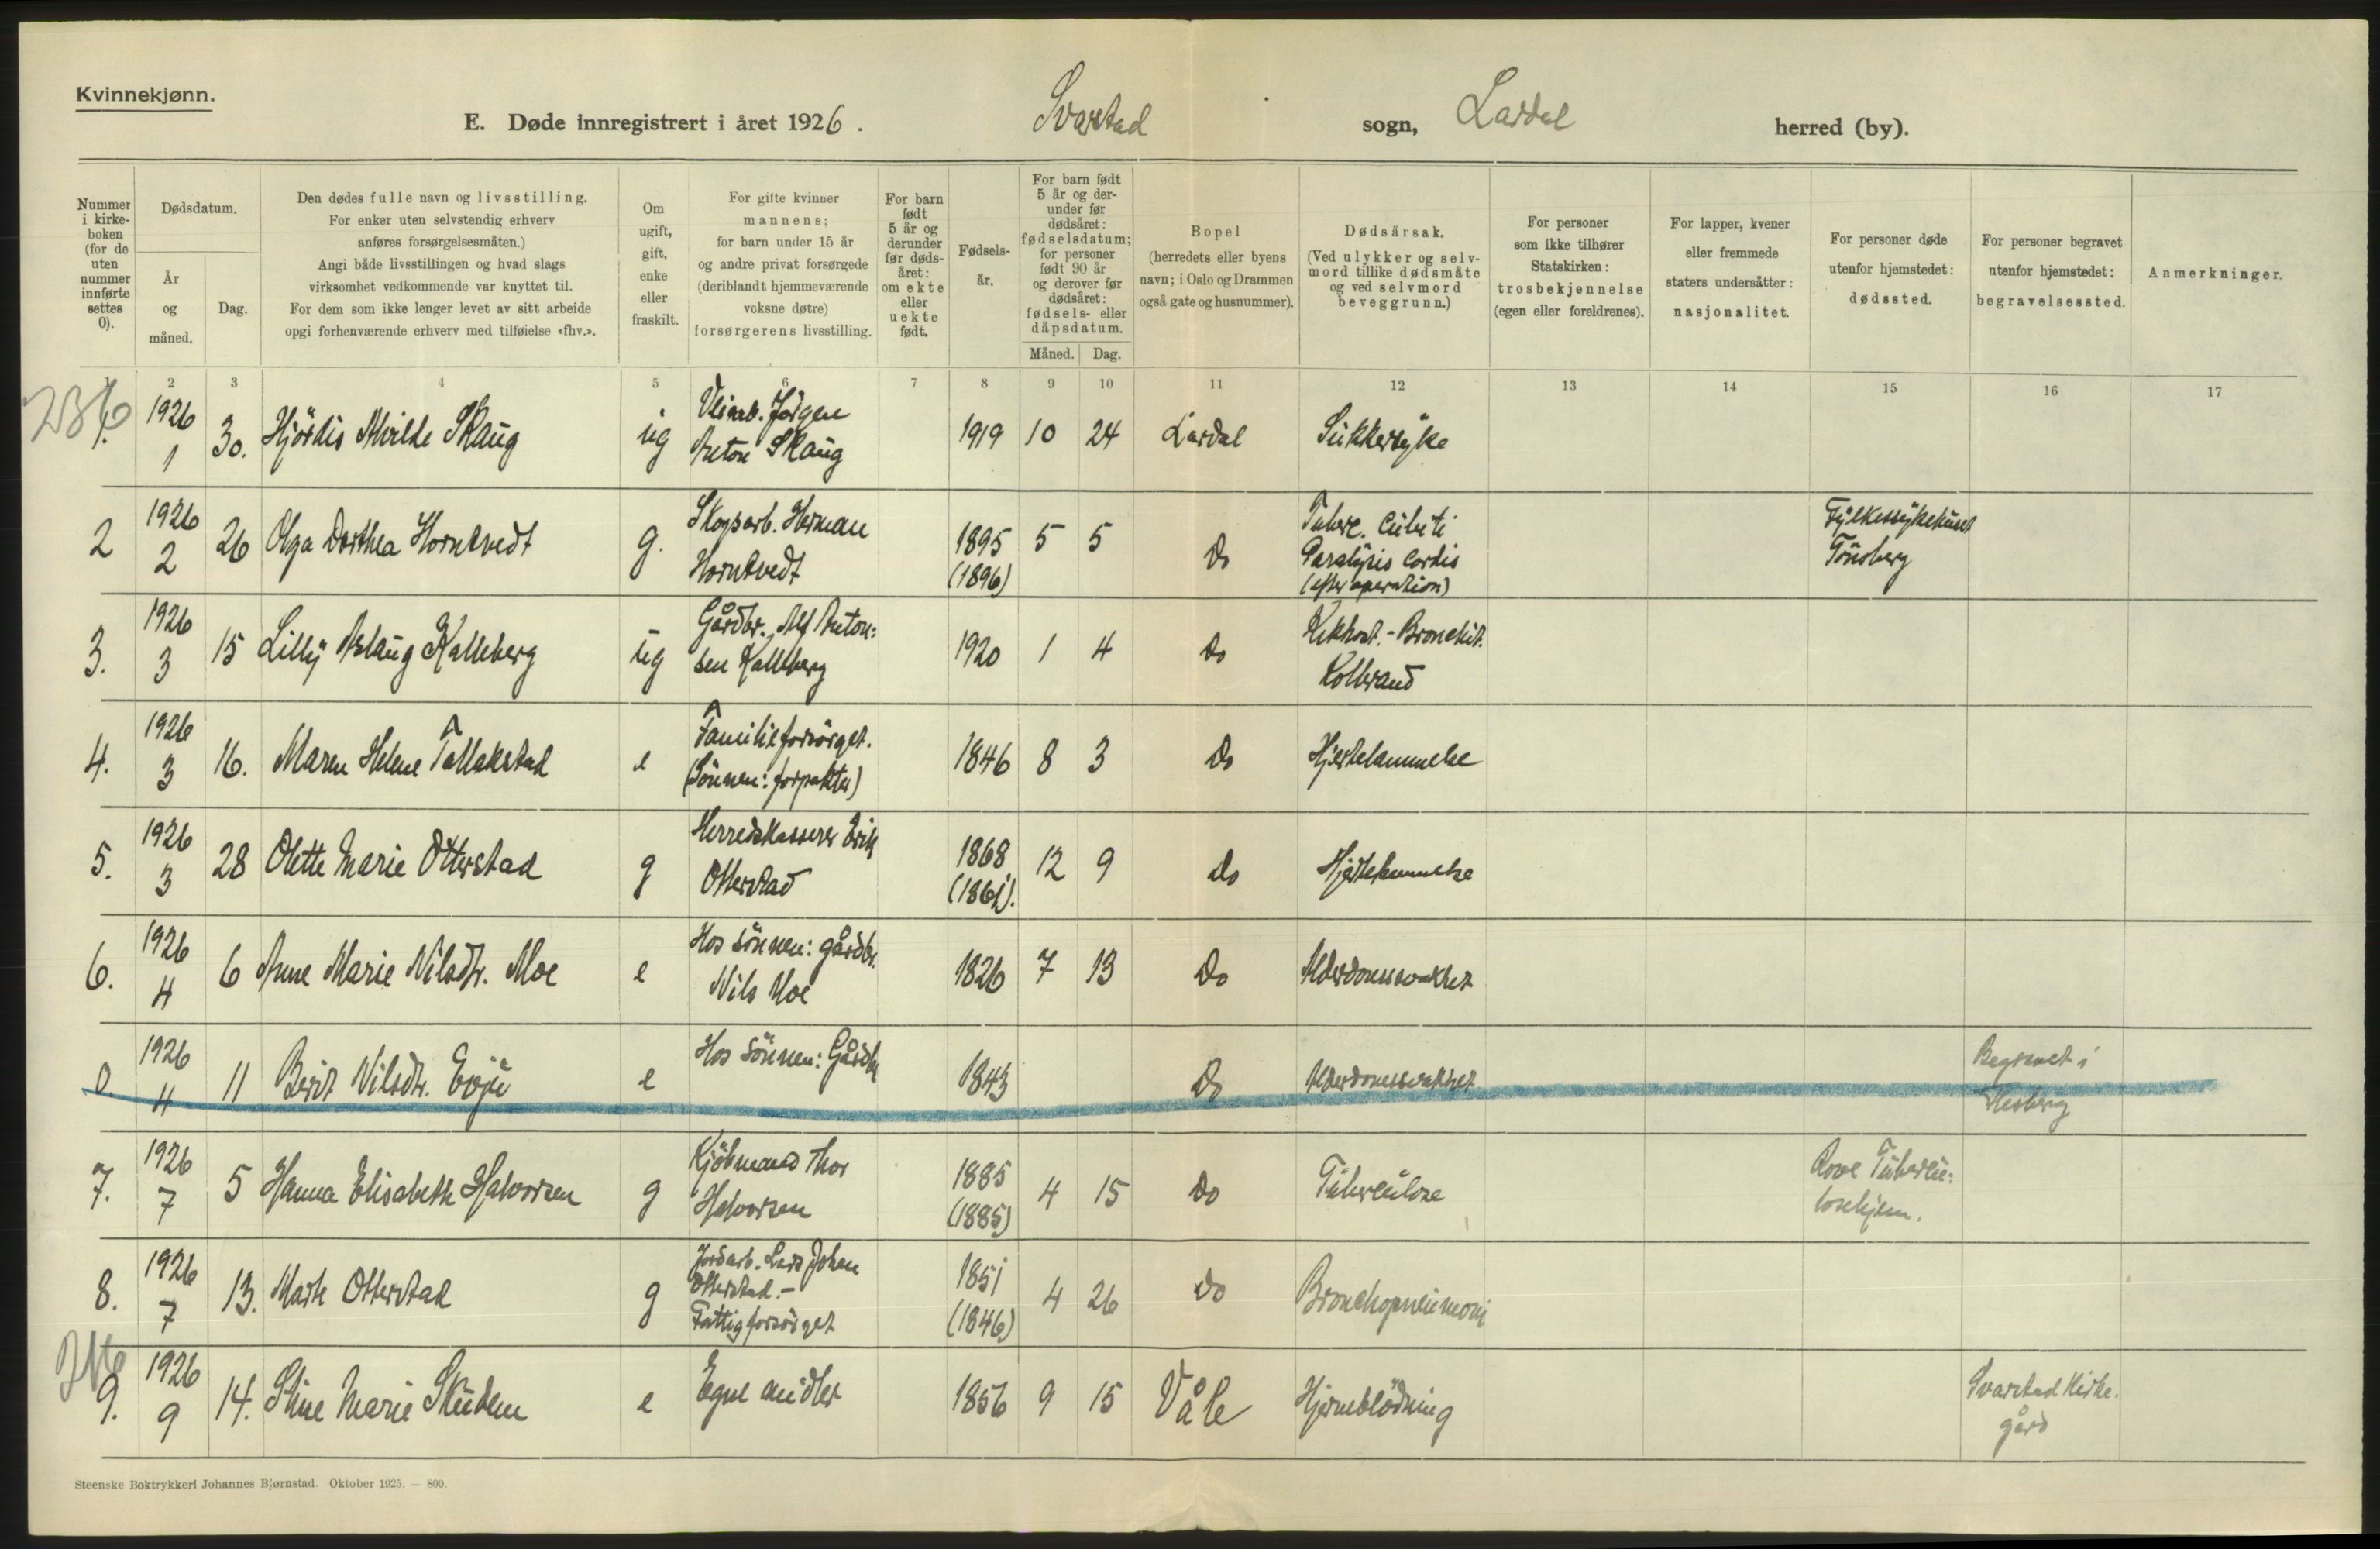 Kvinnekjønn.
E. Døde innregistrert i året 1926. Svarstad sogn, Lardal herred (by).
Nummer i kirke-boken (for de uten nummer innførte settes 0).
Dødsdatum.
År og måned.
Dag.
Den dødes fulle navn og livsstilling.
For enker uten selvstendig erhverv
anføres forsørgelsesmåten.)
Angi både livsstillingen og hvad slags
virksomhet vedkommende var knyttet til.
For dem som ikke lenger levet av sitt arbeide
opgi forhenværende erhverv med tilføielse «fhv.».
Om ugift, gift, enke eller fraskilt.
For gifte kvinner
mannens;
for barn under 15 år
og andre privat forsørgede
(deriblandt hjemmeværende
voksne døtre)
forsørgerens livsstilling.
For barn født 5 år og derunder før døds-året: om ekte eller uekte født.
Fødsels-år.
For barn født 5 år og der-under før dødsåret: fødselsdatum; for personer født 90 år og derover før dødsåret: fødsels- eller dåpsdatum.
Måned. Dag.
Bopel
(herredets eller byens
navn; i Oslo og Drammen
også gate og husnummer).
Dødsårsak.
(Ved ulykker og selv-
mord tillike dødsmåte
og ved selvmord
beveggrunn.)
For personer
som ikke tilhører
Statskirken:
trosbekjennelse
(egen eller foreldrenes).
For lapper, kvener
eller fremmede
staters undersåtter:
nasjonalitet.
For personer døde
utenfor hjemstedet:
dødssted.
For personer begravet
utenfor hjemstedet:
begravelsessted.
Anmerkninger.
1 2 3 4 5 6 7 8 9 10 11 12 13 14 15 16 17
1. 1926 1 30. Hjördis Alvilde Skaug ug Jörgen Anton Skaug 1919 10 24 Lardal Sukkersyke
2 1926 2 26 Olga Dorthea Horntvedt g. Skogsarb. Herman Horntvedt 1895 (1896) 5 5 Do Tuberc. cubiti Paralysis cordis (efter operation) Fylkessykehuset Tönsberg
3. 1926 3 15 Lilly Aslaug Kalleberg ug Gårdbr. Alf Anton: sen Kalleberg 1920 1 4 Do Kikhost. - Bronchit. Kolbrand
4. 1926 3 16. Maren Helene Tallakstad e Familieforsörget. (Sönnen: forpakter) 1846 8 3 Do Hjertelammelse
5. 1926 3 28 Olette Marie Otterstad g Herredskasserer Erik Otterstad 1868 (1861). 12 9 Do Hjertelammelse
6. 1926 4 6 Anne Marie Nilsdtr. Moe e Hos sönnen: gårdbr. Nils Moe 1826 7 13 Do Alderdomssvakhet
0. 1926 4 11 Berit Nilsdtr. Evju e Hos sönnen: Gårdbr 1843 Do Alderdomssvakhet Begravet i Hesberg
7. 1926 7 5 Hanna Elisabeth Halvorsen g Kjöbmand Thor Halvorsen 1885 (1885) 4 15 Do Tuberculose Rove Tubercu: losehjem.
8. 1926 7 13. Marte Otterstad g Jordarb. Lars Johan Otterstad. - Fattigforsörget 1851 (1846) 4 26 Do Bronchopneumoni
9. 1926 9 14. Stine Marie Skudem e Egne midler 1856 9 15 Våle Hjerneblödning Svarstad Kirke. gård
Steenske Boktrykkeri Johannes Bjørnstad. Oktober 1925. — 800.